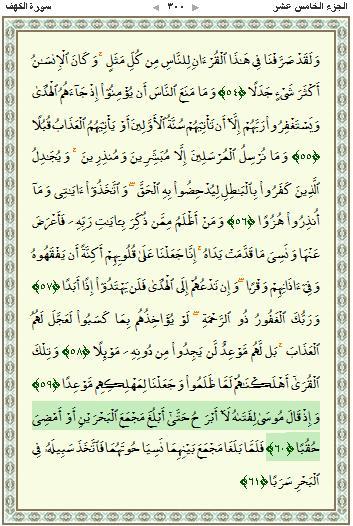 الجزء الخامس عشر ٣٠٠ سورة الكهف
وَلَقَدْ صَرَّفْنَا فِي هَـٰذَا الْقُرْءَانِ لِلنَّاسِ مِن كُلِّ مَثَلٍ ۚ وَكَانَ الْإِنسَـٰنُ
أَكْثَرَ شَيْءٍ جَدَلًا ﴿٥٤﴾ وَمَا مَنَعَ النَّاسَ أَن يُؤْمِنُوٓا۟ إِذْ جَآءَهُمُ الْهُدَىٰ
وَيَسْتَغْفِرُوا۟ رَبَّهُمْ إِلَّآ أَن تَأْتِيَهُمْ سُنَّةُ الْأَوَّلِينَ أَوْ يَأْتِيَهُمُ الْعَذَابُ قُبُلًا
﴿٥٥﴾ وَمَا نُرْسِلُ الْمُرْسَلِينَ إِلَّا مُبَشِّرِينَ وَمُنذِرِينَ ۚ وَيُجَـٰدِلُ
الَّذِينَ كَفَرُوا۟ بِالْبَـٰطِلِ لِيُدْحِضُوا۟ بِهِ الْحَقَّ ۖ وَاتَّخَذُوٓا۟ ءَايَـٰتِي وَمَآ
أُنذِرُوا۟ هُزُوًا ﴿٥٦﴾ وَمَنْ أَظْلَمُ مِمَّن ذُكِّرَ بِـَٔايَـٰتِ رَبِّهِۦ فَأَعْرَضَ
عَنْهَا وَنَسِيَ مَا قَدَّمَتْ يَدَاهُ ۚ إِنَّا جَعَلْنَا عَلَىٰ قُلُوبِهِمْ أَكِنَّةً أَن يَفْقَهُوهُ
وَفِيٓ ءَاذَانِهِمْ وَقْرًا ۖ وَإِن تَدْعُهُمْ إِلَى الْهُدَىٰ فَلَن يَهْتَدُوٓا۟ إِذًا أَبَدًا ﴿٥٧﴾
وَرَبُّكَ الْغَفُورُ ذُو الرَّحْمَةِ ۖ لَوْ يُؤَاخِذُهُم بِمَا كَسَبُوا۟ لَعَجَّلَ لَهُمُ
الْعَذَابَ ۚ بَل لَّهُم مَّوْعِدٌ لَّن يَجِدُوا۟ مِن دُونِهِۦ مَوْئِلًا ﴿٥٨﴾ وَتِلْكَ
الْقُرَىٰٓ أَهْلَكْنَـٰهُمْ لَمَّا ظَلَمُوا۟ وَجَعَلْنَا لِمَهْلِكِهِم مَّوْعِدًا ﴿٥٩﴾
وَإِذْ قَالَ مُوسَىٰ لِفَتَىٰهُ لَآ أَبْرَحُ حَتَّىٰٓ أَبْلُغَ مَجْمَعَ الْبَحْرَيْنِ أَوْ أَمْضِيَ
حُقُبًا ﴿٦٠﴾ فَلَمَّا بَلَغَا مَجْمَعَ بَيْنِهِمَا نَسِيَا حُوتَهُمَا فَاتَّخَذَ سَبِيلَهُۥ فِي
الْبَحْرِ سَرَبًا ﴿٦١﴾